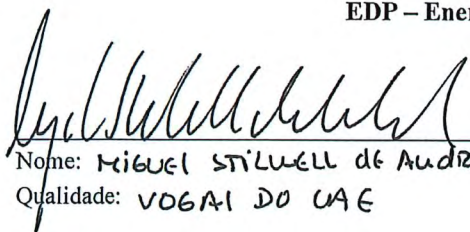 EDP – Ener
Nome: MIGUEL STILWELL de Andr
Qualidade: VOGAL DO CAE